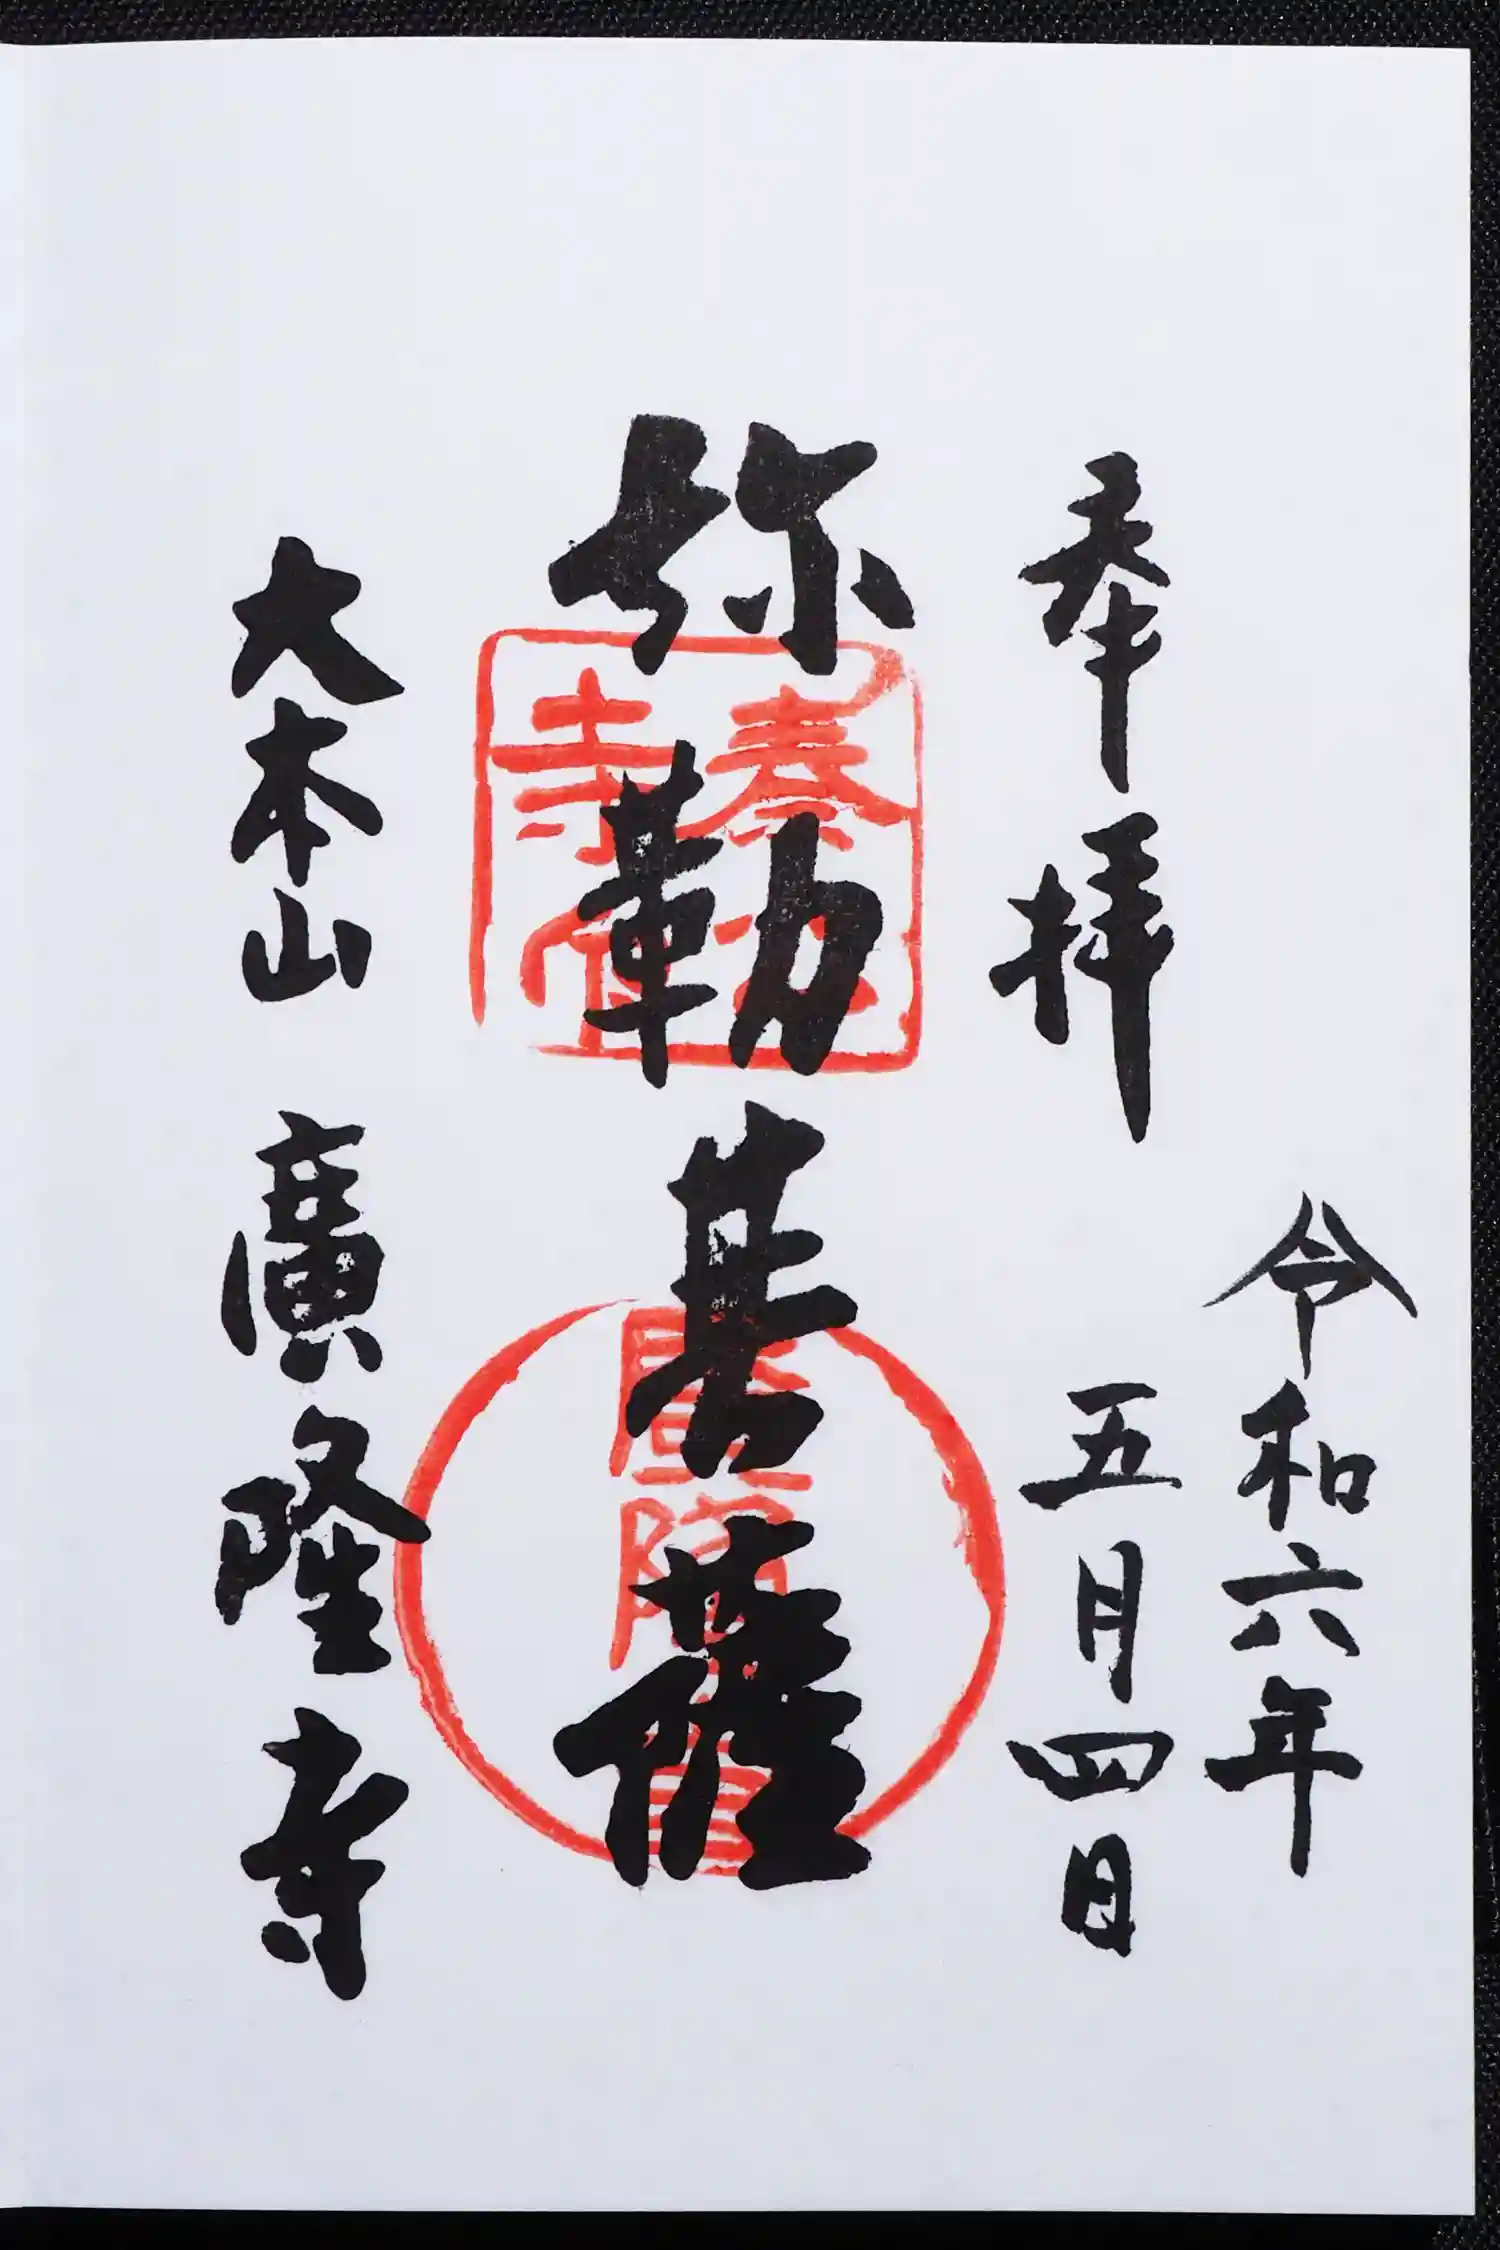 令和六年
五月四日
奉拝
弥勒菩薩
大本山 廣隆寺